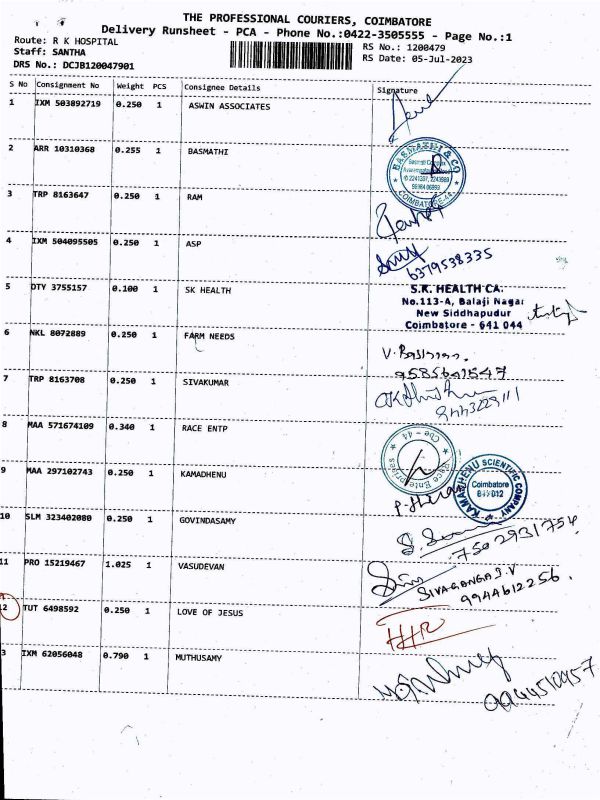 THE PROFESSIONAL COURIERS, COIMBATORE
Delivery Runsheet - PCA - Phone No.:0422-3505555 - Page No.:1
Route: R K HOSPITAL
Staff: SANTHA
DRS No.: DCJB120047901
RS No.: 1200479
RS Date: 05-Jul-2023
S No Consignment No Weight PCS Consignee Details Signature
1 IXM 503892719 0.250 1 ASWIN ASSOCIATES
2 ARR 10310368 0.255 1 BASMATHI
BASMATHI & CO
COIMBATORE-44
3 TRP 8163647 0.250 1 RAM
4 IXM 504095505 0.250 1 ASP
6379538335
5 DTY 3755157 0.100 1 SK HEALTH
S.K. HEALTH CA.
No.113-A, Balaji Nagar
New Siddhapudur
Coimbatore - 641 044
6 NKL 8072889 0.250 1 FARM NEEDS
7 TRP 8163708 0.250 1 SIVAKUMAR
8 MAA 571674109 0.340 1 RACE ENTP
Race Enterprises
Cbe - 44
9 MAA 297102743 0.250 1 KAMADHENU
KAMADHENU SCIENTIFIC COMPANY
Coimbatore
10 SLM 323402080 0.250 1 GOVINDASAMY
7502931754
11 PRO 15219467 1.025 1 VASUDEVAN
SIVAGANGA J.V
9944612256.
12 TUT 6498592 0.250 1 LOVE OF JESUS
3 IXM 62056048 0.790 1 MUTHUSAMY